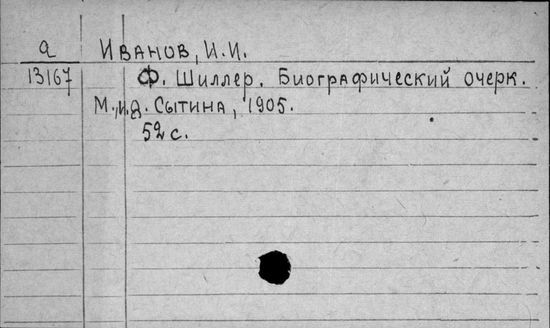 а ИВАНОВ, И.И.
13167 Ф. Шиллер. Биографический очерк.
М., изд. Сытина, 1905.
52 с.